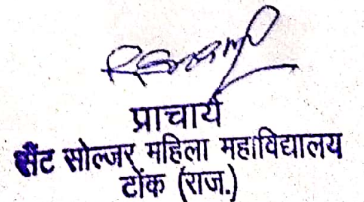 प्राचार्य
सैंट सोल्जर महिला महाविद्यालय
टोंक (राज.)